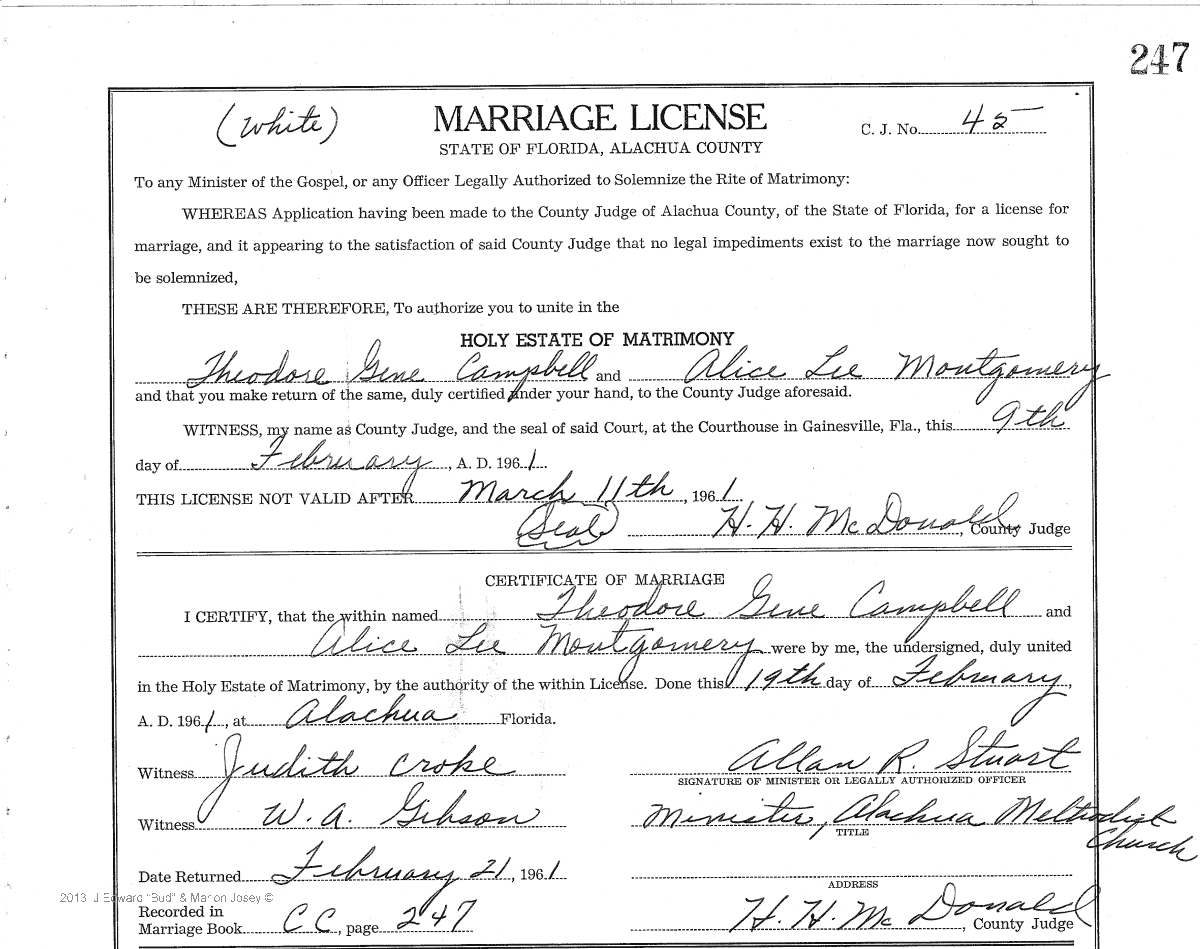 247
(White)
MARRIAGE LICENSE
C. J. No. 45
STATE OF FLORIDA, ALACHUA COUNTY
To any Minister of the Gospel, or any Officer Legally Authorized to Solemnize the Rite of Matrimony:
WHEREAS Application having been made to the County Judge of Alachua County, of the State of Florida, for a license for
marriage, and it appearing to the satisfaction of said County Judge that no legal impediments exist to the marriage now sought to
be solemnized,
THESE ARE THEREFORE, To authorize you to unite in the
HOLY ESTATE OF MATRIMONY
Theodore Gene Campbell and Alice Lee Montgomery
and that you make return of the same, duly certified under your hand, to the County Judge aforesaid.
WITNESS, my name as County Judge, and the seal of said Court, at the Courthouse in Gainesville, Fla., this 9th
day of February, A. D. 1961.
THIS LICENSE NOT VALID AFTER March 11th, 1961
(Seal) H. H. McDonald, County Judge
CERTIFICATE OF MARRIAGE
I CERTIFY, that the within named Theodore Gene Campbell and
Alice Lee Montgomery were by me, the undersigned, duly united
in the Holy Estate of Matrimony, by the authority of the within License. Done this 19th day of February,
A. D. 1961, at Alachua Florida.
Witness Judith Croke Allan R. Stuart
SIGNATURE OF MINISTER OR LEGALLY AUTHORIZED OFFICER
Witness W. A. Gibson Minister, Alachua Methodist Church
TITLE
Date Returned February 21, 1961
ADDRESS
2013 J Edward "Bud" & Marion Josey ©
Recorded in
Marriage Book CC, page 247 H. H. McDonald, County Judge